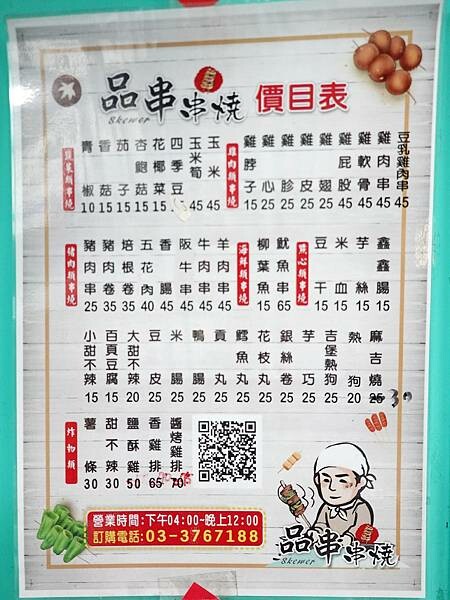 品串串燒 價目表
Skewer
蔬菜類串燒
青椒 10
香菇 15
茄子 15
杏鮑菇 15
花椰菜 15
四季豆
玉米筍 45
玉米 45
雞肉類串燒
雞脖子 15
雞心 25
雞胗 25
雞皮 25
雞翅
雞屁股 45
雞軟骨 45
雞肉串 45
豆乳雞肉串 45
豬肉類串燒
豬肉串 25
豬肉卷 35
培根卷 35
五花肉 40
香腸 45
阪牛串 45
牛肉串 45
羊肉串 45
海鮮類串燒
柳葉魚 15
魷魚串 65
點心類串燒
豆干 15
米血 15
芋絲 15
鑫鑫腸 15
小甜不辣 15
百頁豆腐 15
大甜不辣 25
豆皮 25
米腸 25
鴨腸 25
貢丸 25
鱈魚丸 25
花枝丸 25
銀絲卷 25
芋巧 25
吉堡熱狗 25
熱狗 20
麻吉燒 25 30
炸物類
薯條 30
甜不辣 30
鹽酥雞 50
香雞排 65
醬烤雞排 70
營業時間:下午04:00-晚上12:00
訂購電話:03-3767188
品串串燒
Skewer